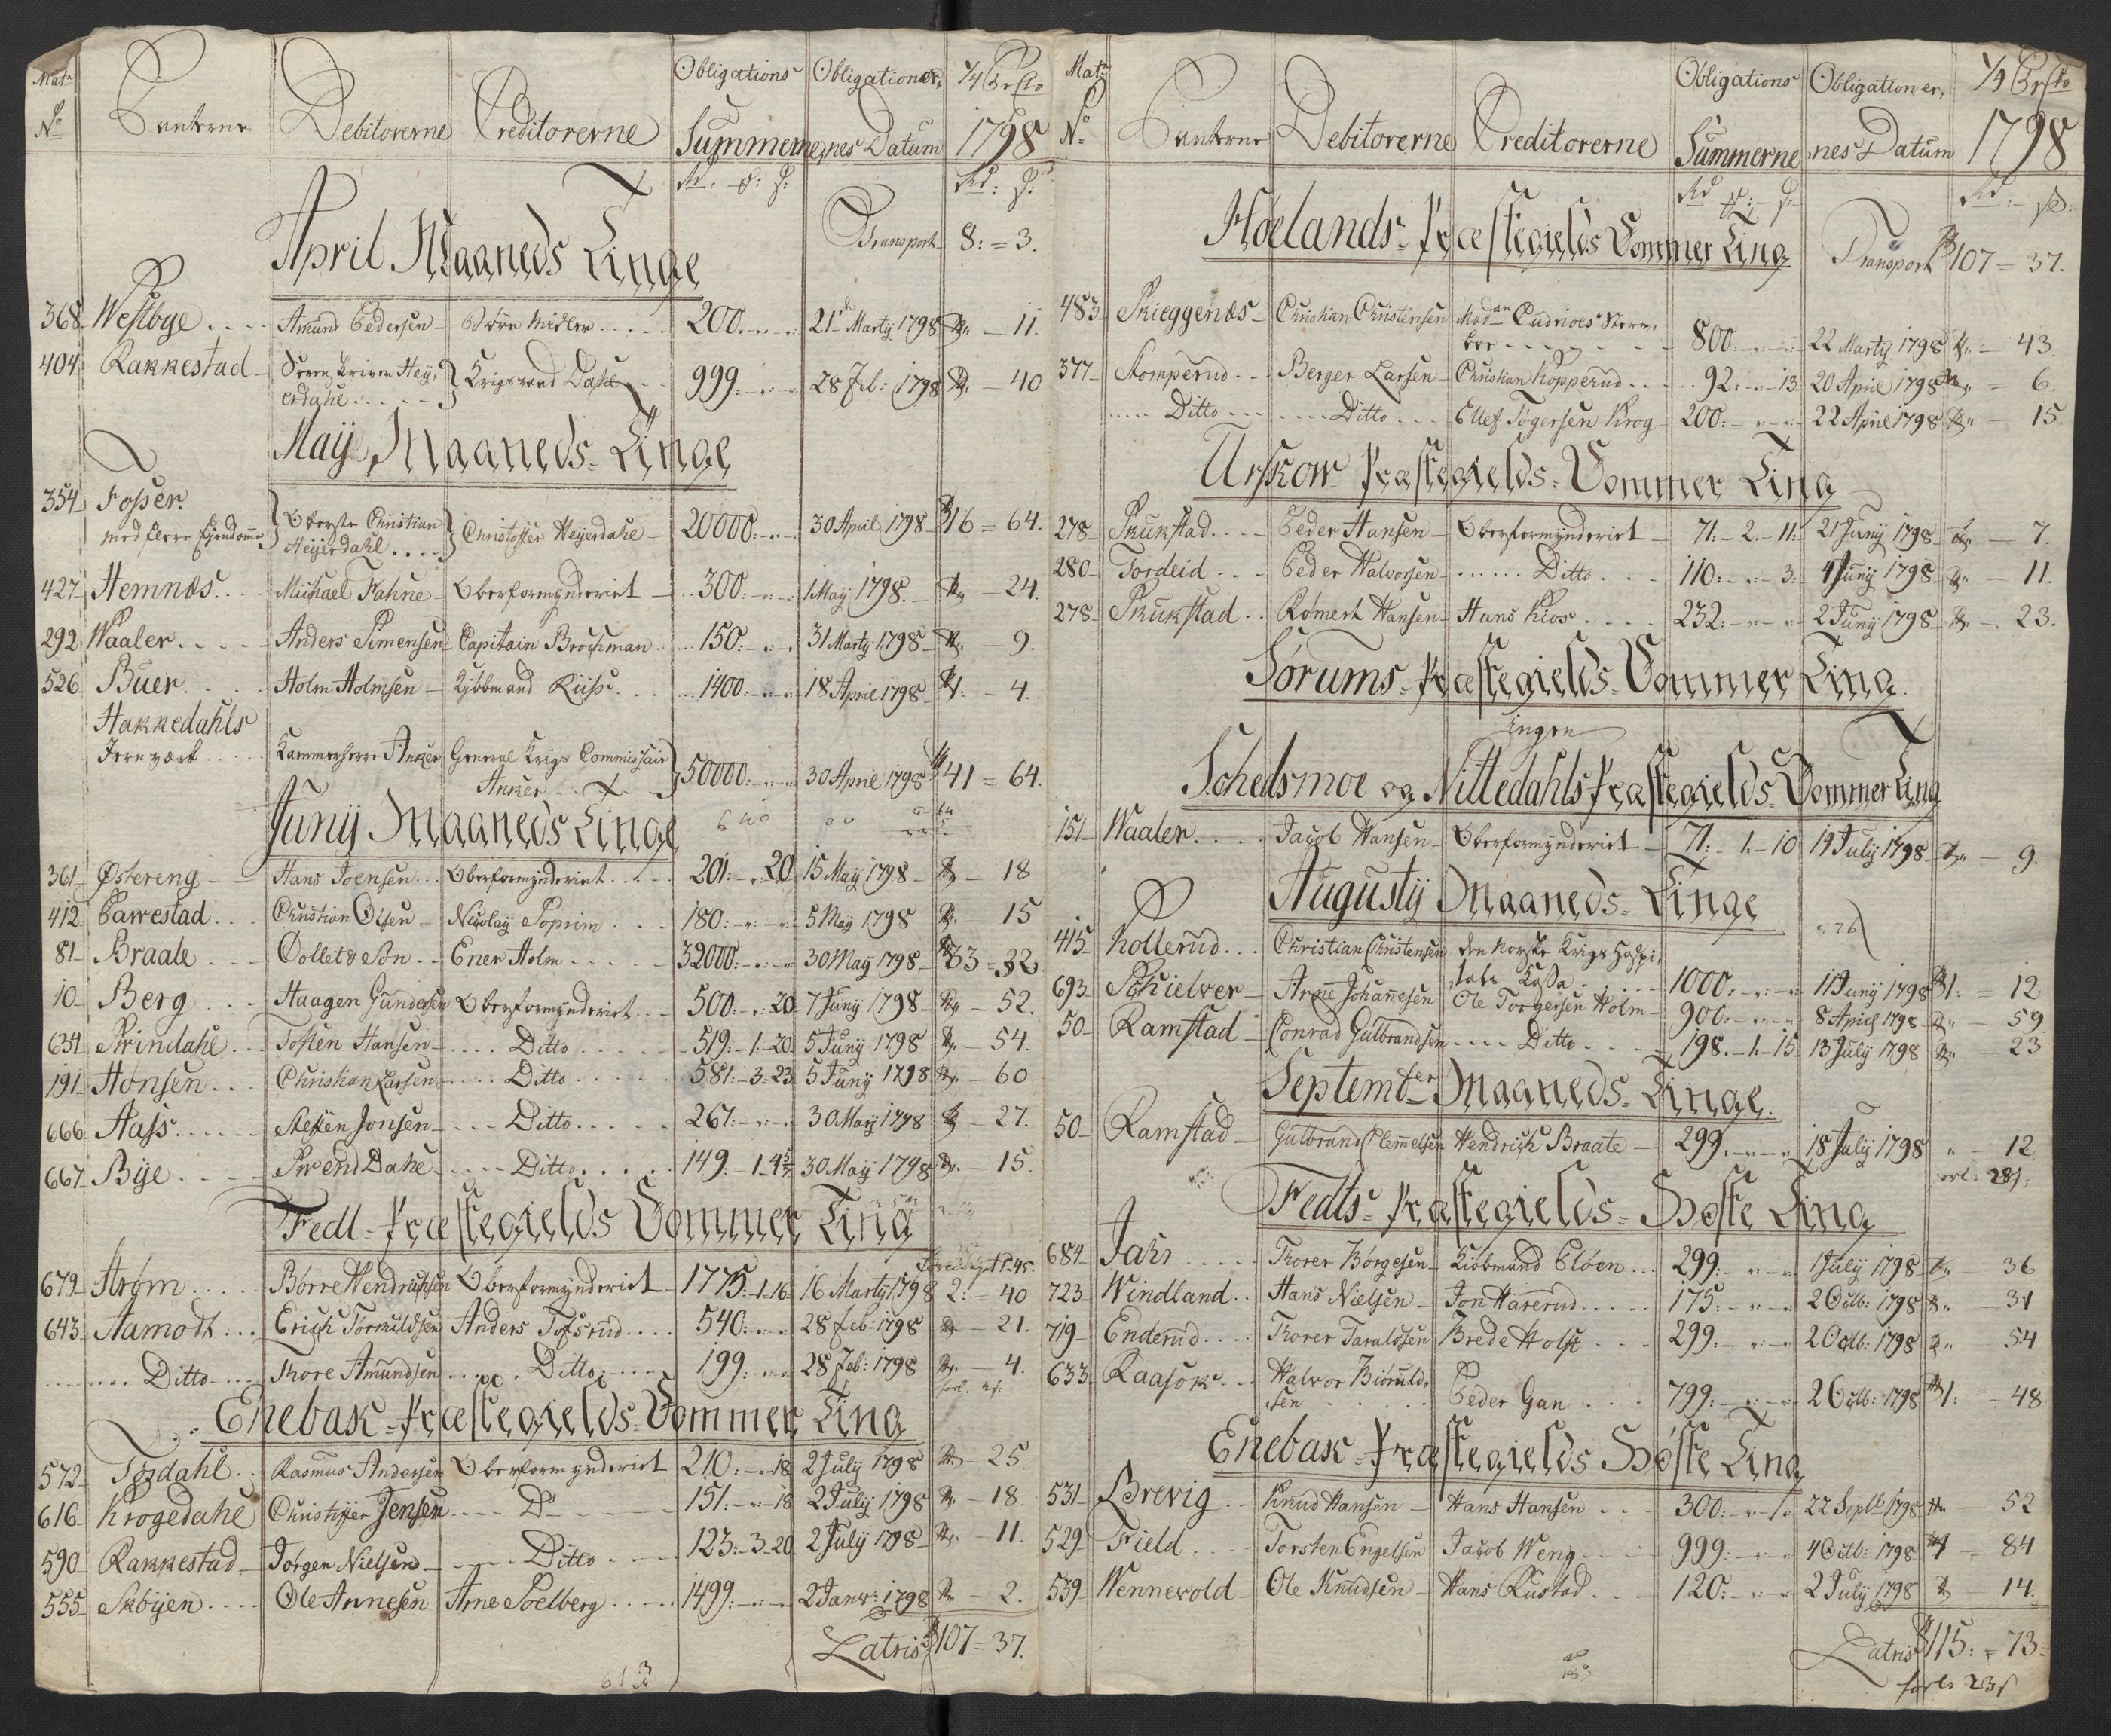 Mat: No Panterne Debitorerne Creditorerne Obligations Summerne Obligationer,nes Datum 1/4 Prcto 1798
Rd. - ß:
April Maaneds Tinge
Transport 8: = 3.
368 Westbye Amund Pedersen Sören Midler 200. 21de Marty 1798 11.
404 Rakkestad Sorenskriver Heyerdahl Krigsraad Dahl 999. 28 Feb: 1798 40
Maij Maaneds Tinge
354 Fosser med flere Eiendomme Oberste Christian Heyerdahl Christoffer Heyerdahl 20000. 30 April 1798 16 = 64.
427 Hemnæs Michael Fahne Oberformynderiet 300. 1 May 1798. 24.
292 Waaler Anders Simensen Capitain Brochman 150. 31 Marty 1798 9.
526 Büer Holm Holmsen Kjöbmand Riiss 1400. 18 April 1798 1: 4.
Hakkedahls
Jernværk Kammerherre Anker General Krigs Commissair Anker 50000. 30 April 1798 41 = 64.
Junij Maaneds Tinge
361 Østereng Hans Joensen Oberformynderiet 201. 20 15 Maij 1798 18
412 Pawestad Christian Olsen Nicolay Soprim 180. 5 May 1798 15
81 Braate Collet & Søn Ener Holm 32000. 30 May 1798 33 = 32
10 Berg Haagen Gundersen Oberformynderiet 500. 20 7 Juny 1798 52.
634 Skrindahl Tosten Hansen Ditto 519. 1. 20 5 Juny 1798 54.
191 Honsen Christian Larsen Ditto 581. 3. 23 5 Juny 1798 60
666 Aass Steffen Jonsen Ditto 267. 30 May 1798 27.
667 Bye Svend Dahl Ditto 149. 1. 30 Maij 1798 15.
Fedt Præstegields Sommer Ting
679 Strøm Børre Hendrichsen Oberformynderiet 1775. 1. 16 16 Marty 1798 2: = 40
643 Aamodt Erich Torkuldsen Anders Tofsrud 540. 28 Feb: 1798 21.
Ditto Thore Amundsen Ditto 199. 28 Feb: 1798 4.
Enebak Præstegields Sommer Ting
572 Tosdahl Rasmus Andersen Oberformynderiet 210. 18 2 July 1798 25.
616 Krogedahl Christoffer Jensen Do 151. 18 2 July 1798 18.
590 Rakkestad Jørgen Nielsen Ditto 123. 3. 20 2 July 1798 11.
555 Skbijen Ole Annesen Arne Soelberg 1499. 2 Janr: 1798 2.
Latris 107 = 37.
Mat: No Panterne Debitorerne Creditorerne Obligations Summerne Obligationer,nes Datum 1/4 Prcto 1798
Hoelands Præstegields Sommer Ting
Transport 107 = 37.
483 Skieggenæs Christian Christensen 800. 22 Marty 1798 43.
377 Stomperud Berger Larsen Christian Kopperud 92. 13 20 April 1798 6.
Ditto Ditto Ellef Togersen Krog 200. 22 April 1798 15
Urskow Præstegields Sommer Ting
278 Skukstad Peder Hansen Oberformynderiet 71. 2. 11. 21 Juny 1798 7.
280 Tordeid Peder Halvorsen Ditto 110. 3. 4 Juny 1798 11.
278 Skukstad Rømert Hansen Hans Kios 232. 2 Juny 1798 23.
Sørums Præstegields Sommer Ting
ingen
Schedsmoe og Nittedahls Præstegields Sommer Ting
151 Waaler Jacob Hansen Oberformynderiet 71. 1. 10 19 Julij 1798 9.
Augustij Maaneds Tinge
415 Kollerud Christian Christensen den Norske Krigs Hospitals Kassa 1000. 11 Juny 1798 1: = 12
693 Schielver Arne Johanesen Ole Torgersen Holm 900. 8 April 1798 59
50 Ramstad Conrad Gulbrandsen Ditto 198. 1. 15 13 July 1798 23
Septembr Maaneds Tinge.
50 Ramstad Gulbrand Clemmetsen Hendrich Braate 299. 18 July 1798 12
Fedts Præstegields Høste Ting
684 Jahr Thorer Børgesen Kiöbmand Eloen 299. 1 July 1798 36
723 Windland Hans Nielsen Jon Harerud 175. 2 Octb: 1798 31
719 Enderud Thorer Taraldsen Brede Holst 299. 2 Octb: 1798 54
633 Raasok Halvor Biøruldsen Peder Gan 799. 2 Octb: 1798 1: 48
Enebak Præstegields Høste Ting
531 Brevig Knud Hansen Hans Hansen 300. 22 Septb 1798 52
529 Field Torsten Engelsen Jacob Weng 999. 4 Octb: 1798 1 84
539 Wennewold Ole Knudsen Hans Rustad 120. 2 July 1798 14.
Latris 115: = 73